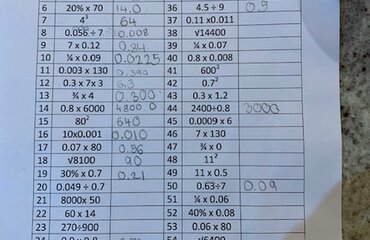 6 20% x 70 14.0 36 4.5 ÷ 9 0.5
7 4³ 64 37 0.11 x0.011
8 0.056 ÷ 7 0.008 38 √14400
9 7 x 0.12 0.84 39 ¼ x 0.07
10 ¼ x 0.09 0.0225 40 0.8 x 0.008
11 0.003 x 130 0.390 41 600²
12 0.3 x 7x 3 6.3 42 0.7²
13 ¾ x 4 0.300 43 0.3 x 1.2
14 0.8 x 6000 4800 0 44 2400÷0.8 3000
15 80² 640 45 0.0009 x 6
16 10x0.001 0.010 46 7 x 130
17 0.07 x 80 0.56 47 ¾ x 0
18 √8100 90 48 11²
19 30% x 0.7 0.21 49 11 x 0.5
20 0.049 ÷ 0.7 50 0.63÷7 0.09
21 8000x 50 51 ¼ x 0.06
22 60 x 14 52 40% x 0.08
23 270÷900 53 0.06 x 80
24 54 √6400